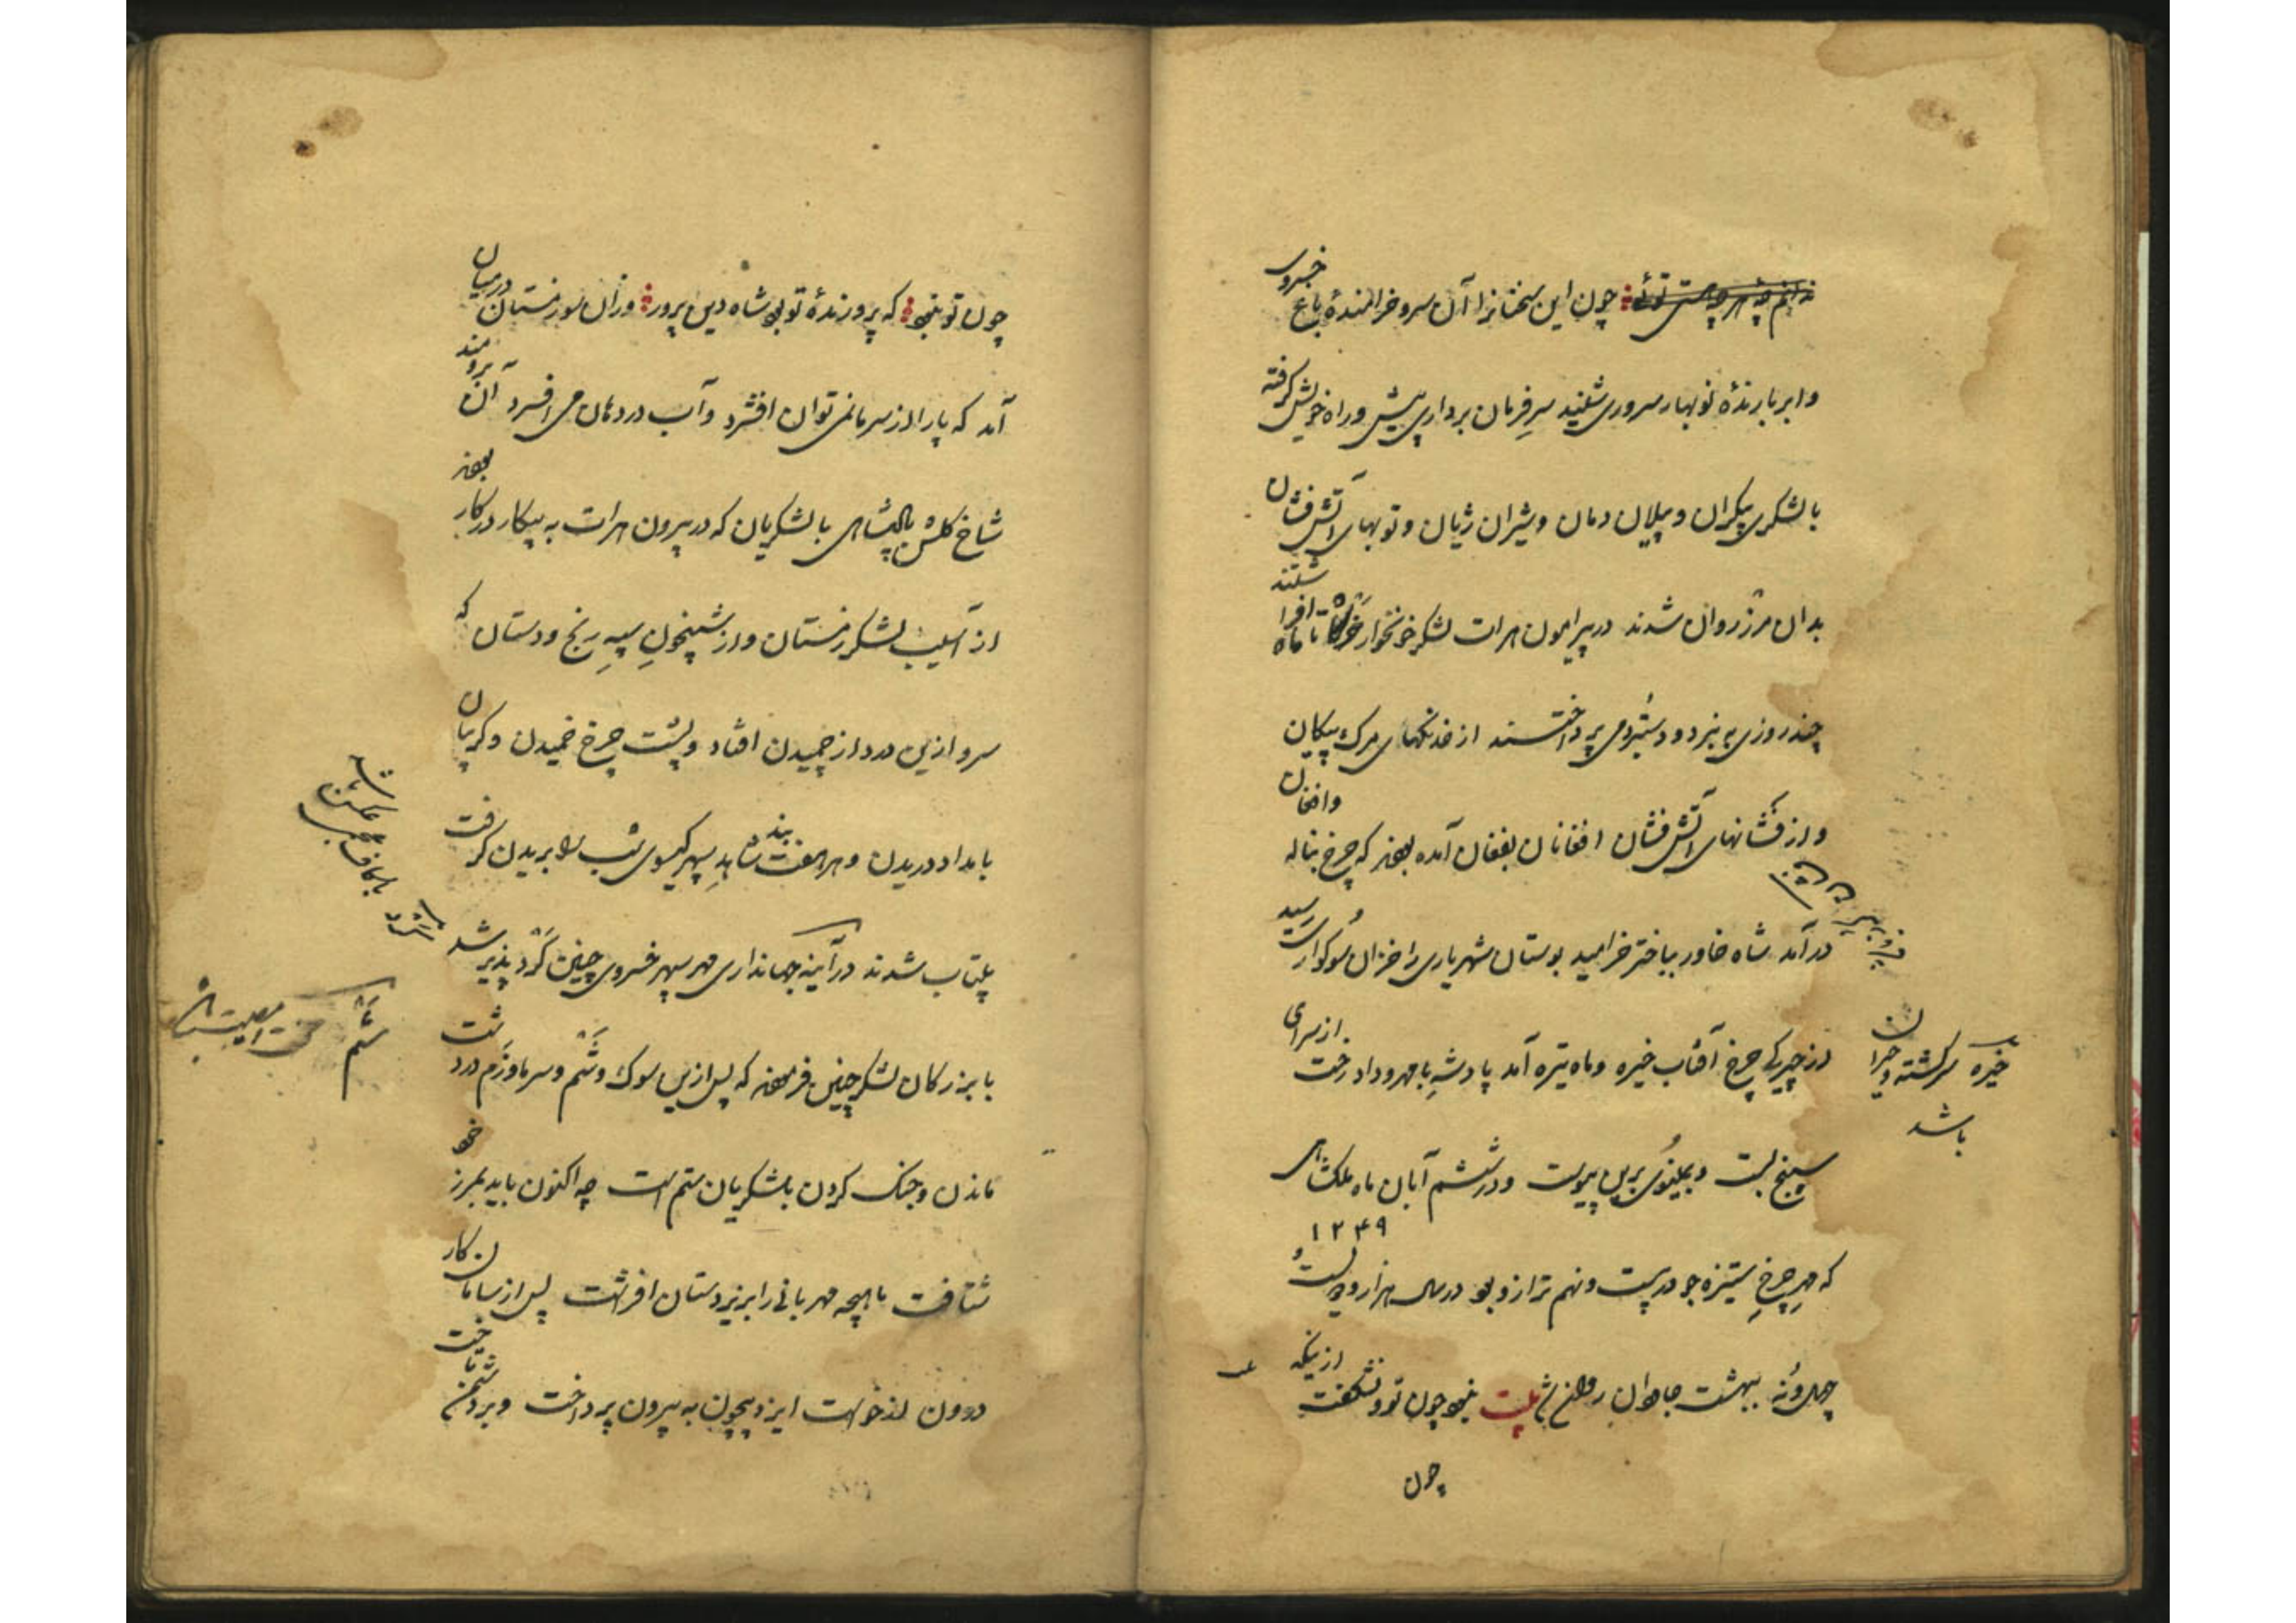 ندانم چه هر چه هستی توئی چون این سخنانرا آن سرو خرامندهٔ باغ خسروی
و ابر بارندهٔ نوبهار سروری شنید سرِ فرمان برداری پیش و راه خویش گرفته
با لشکری بیکران و پیلان دمان و شیران ژیان و توپهای آتش فشان
بدان مرز روان شدند در پیرامون هرات لشکر خونخوار خرگاه تا ماه افراشتند
چند روزی به نبرد و دستبرد می پرداختند از خدنگهای مرک پیکان
و از فشانهای آتش فشان افغانان بفغان آمده بودند که چرخ بناله وافغان
درآمد شاه خاور بباختر خرامید بوستان شهریاری را خزان سوکواری رسید
از چیرکی چرخ آفتاب خیره و ماه تیره آمد پادشهِ با مهر و داد رخت از سرای
خیره سرگشته و حیران
باشد
سپنج بست و بمینوی برین پیوست و در ششم آبان ماه ملکشاهی
۱۲۴۹
که مهرِ چرخِ ستیزه جو در بیست و نهم ترازو بود در سال هزار و دویست و
چهل و نه ببهشت جاودان روان شد بیت نبود چون تو و نشکفت از نیکه
چون
چون تو نبود که پرورندهٔ تو بود شاه دین پرور و زان سو زمستان در میان
آمد که پا را از سرما نمی توان افشرد و آب در دهان می افسرد آن برومند
شاخ گلشن پادشاهی با لشکریان که در بیرون هرات به پیکار در کار بودند
از آسیب لشکر زمستان و از شبیخونِ سپهِ رنج و دستان که
سرو ازین درد از چمیدن افتاد و پشت چرخ خمیدن و گریبان
بامداد دریدن و هر هفت بند شاهدِ سپهر کیسوی شب را بریدن گرفت
بیتاب شدند در آینه جهانداری مهر سپهر خسروی چنین گرد پذیر شد
با بزرکان لشکر چنین فرمودند که پس ازین سوک و ستم و سرما و رزم درد
ستم
ماندن و جنک کردن با لشکریان ستم است چه اکنون باید بمرز خود
شتافت ماهچه مهربانی را بر زیردستان افراشت پس از سامان کار
درون از خواست ایزد بیچون به بیرون پرداخت و بر دشمن تاخت